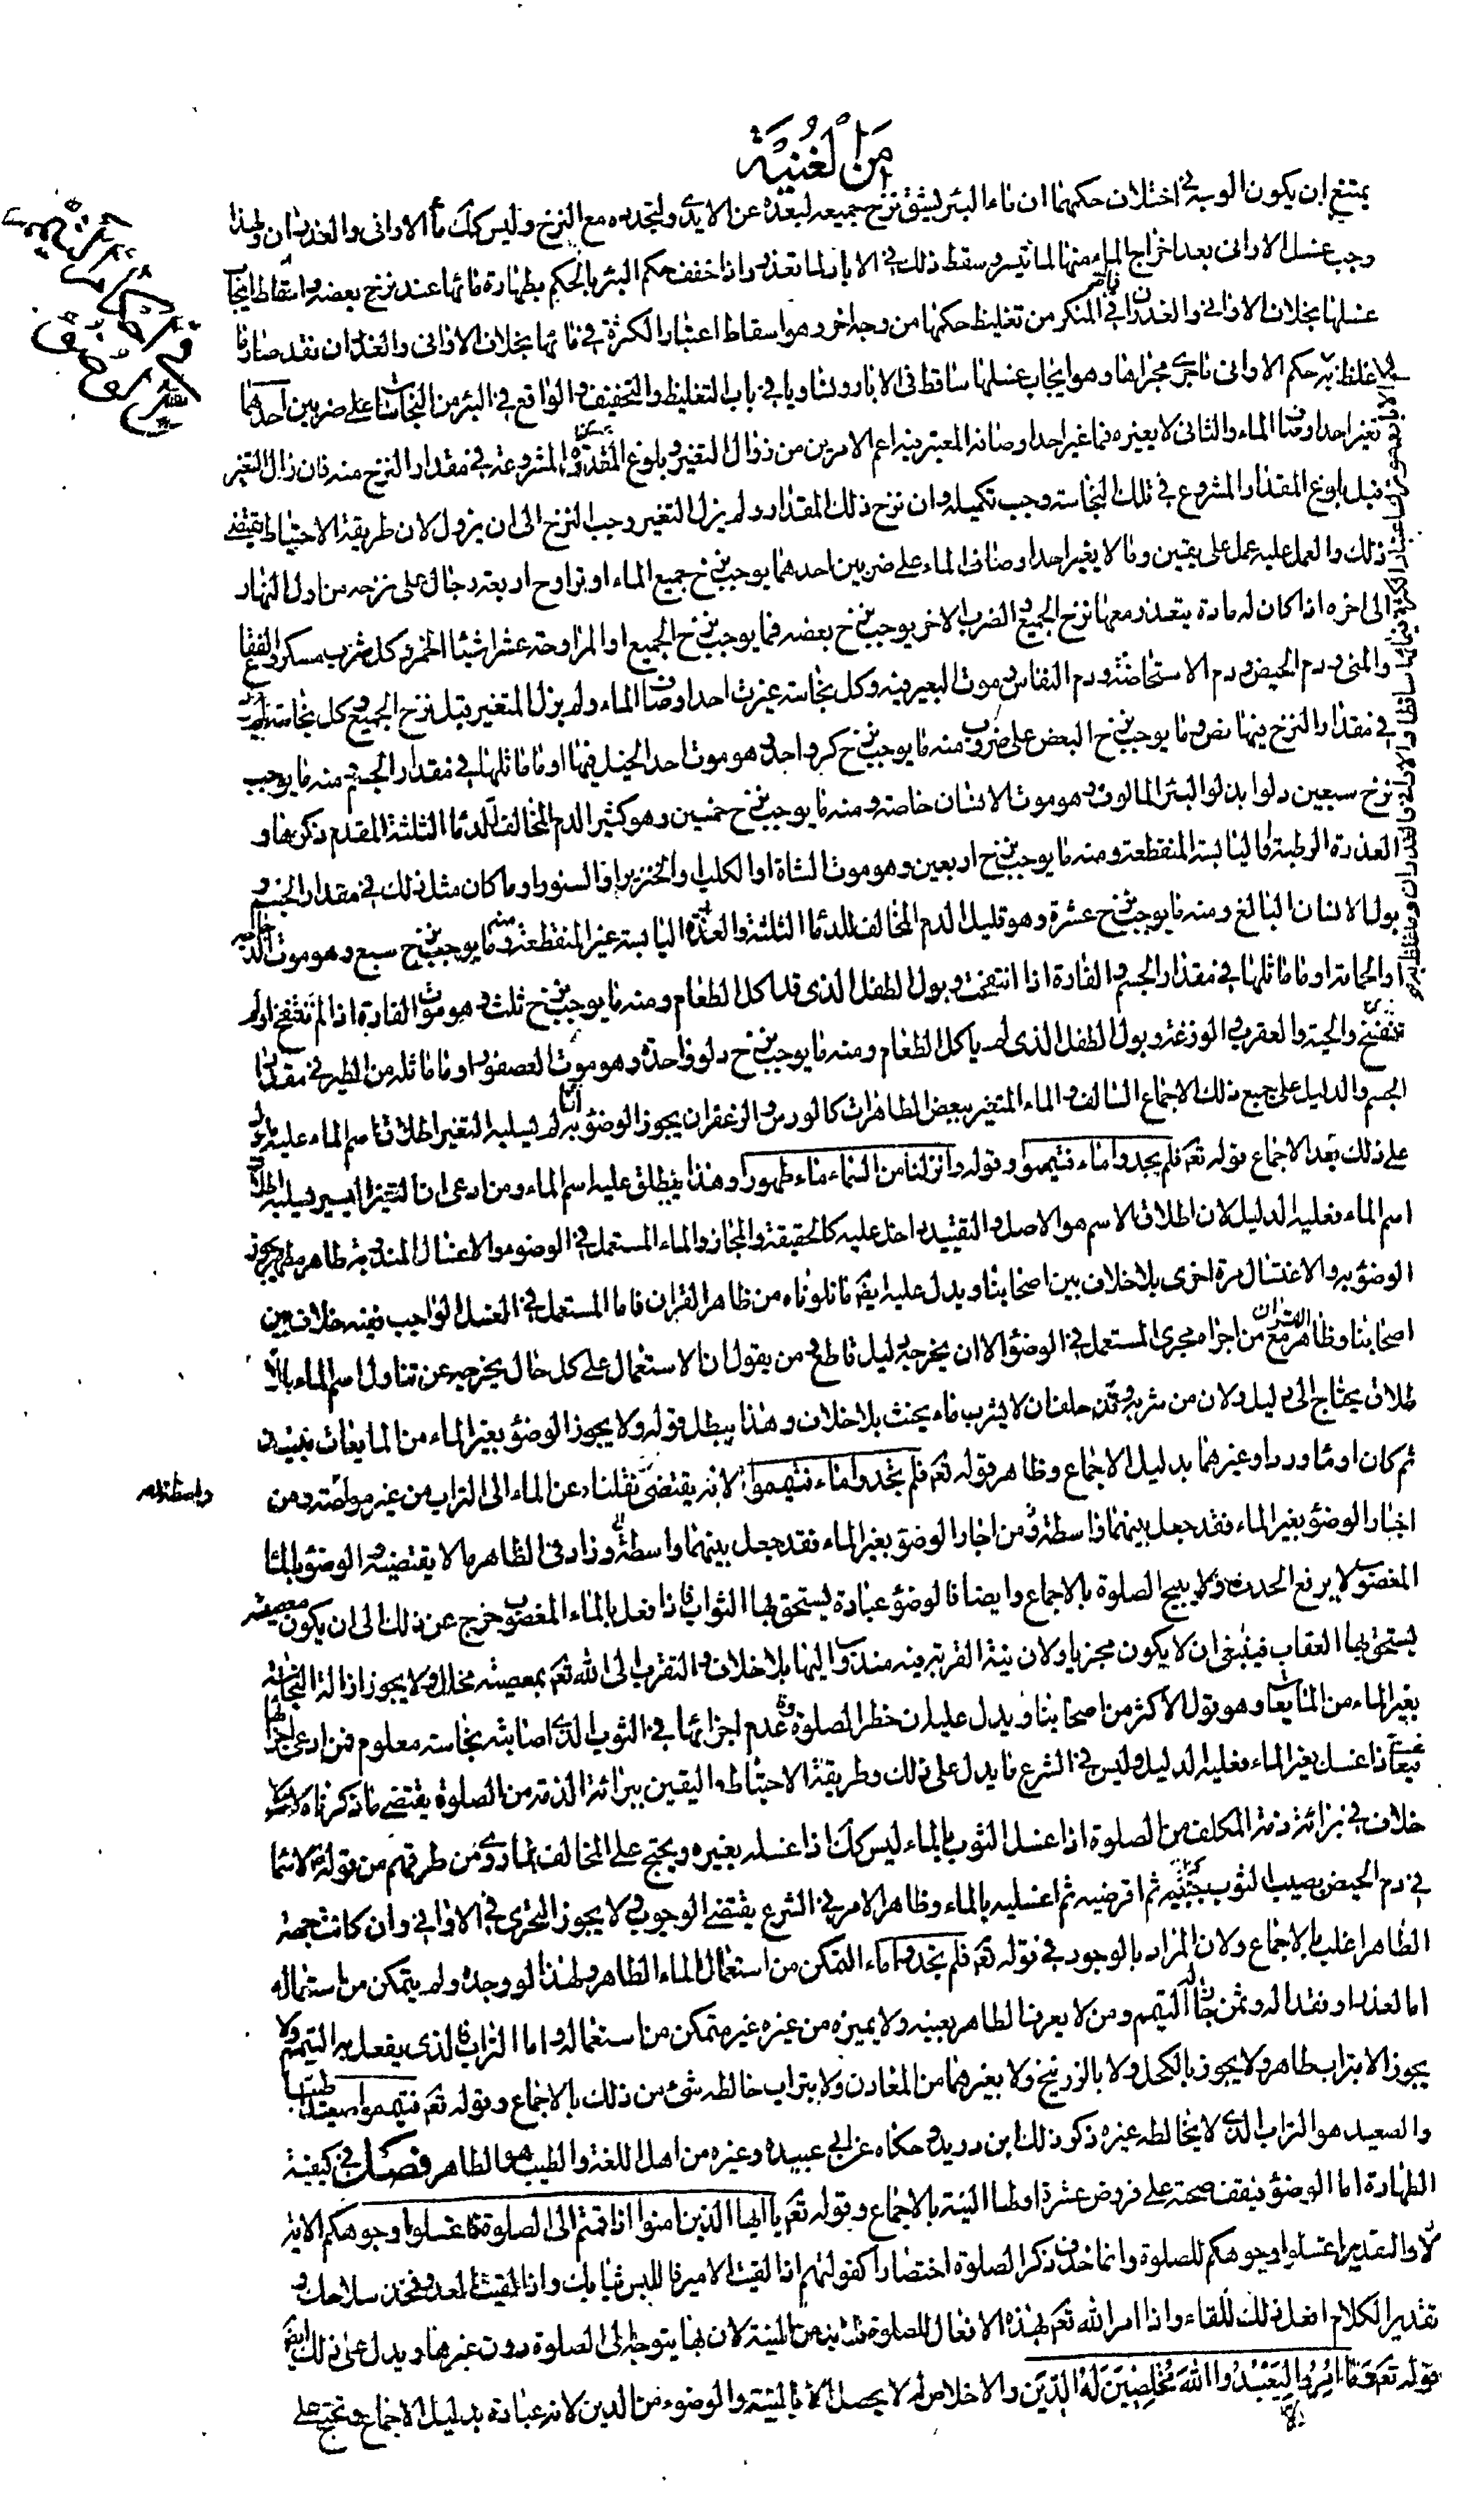 من الغنية
يمتنع ان يكون الوجه في اختلاف حكمهما ان ماء البئر يشق نزح جميعه لبعده عن الايدي ولتجدده مع النزح وليس كك ماء الاواني والغدران ولهذا
وجب غسل الاواني بعد اخراج الماء منها لما تيسر وسقط ذلك في الابار لما تعذر واذا خفف حكم البئر بالحكم بطهارة مائها عند نزح بعضه واسقاط ايجاب
غسلها بخلاف الاواني والغدران في المنكر من تغليظ حكمها من وجه اخر وهو اسقاط اعتبار الكثرة في مائها بخلاف الاواني والغدران فقد صار ما
غلظ به حكم الاواني وما جرى مجراها وهو ايجاب غسلها ساقطا في الابار وتساويا في باب التغليظ والتخفيف والواقع في البئر من النجاسات على ضربين احدهما
تغير احد اوصاف الماء والثاني لا يغيره فما غير احد اوصافه المعتبر فيه اعم الامرين من زوال التغير وبلوغ المقدار المشروعة في مقدار النزح منه فان زال التغير
قبل بلوغ المقدار المشروع في تلك النجاسة وجب تكميله وان نزح ذلك المقدار ولم يزل التغير وجب النزح الى ان يزول لان طريقة الاحتياط يقتضي
ذلك والعمل عليه عمل على يقين وما لا يغير احد اوصاف الماء على ضربين احدهما يوجب نزح جميع الماء او تراوح اربعة رجال على نزحه من اول النهار
الى اخره اذا كان له مادة يتعذر معها نزح الجميع والضرب الاخر يوجب نزح بعضه فما يوجب نزح الجميع او المراوحة عشرة اشياء الخمر وكل شراب مسكر والفقاع
والمني ودم الحيض ودم الاستحاضة ودم النفاس وموت البعير فيه وكل نجاسة غيرت احد اوصاف الماء ولم يزل المتغير قبل نزح الجميع وكل نجاسة لم يرد
في مقدار النزح فيها نص وما يوجب نزح البعض على ضروب منه ما يوجب نزح كر واحد وهو موت احد الخيل فيها او ما ماثلها في مقدار الجسم منه ما يوجب
نزح سبعين دلوا بدلو البئر المالوف وهو موت الانسان خاصة ومنه ما يوجب نزح خمسين وهو كثير الدم المخالف للدماء الثلثة المقدم ذكرها و
العذرة الرطبة واليابسة المنقطعة ومنه ما يوجب نزح اربعين وهو موت الشاة او الكلب والخنزير او السنور او ما كان مثل ذلك في مقدار الجسم و
بول الانسان البالغ ومنه ما يوجب نزح عشرة وهو قليل الدم المخالف للدماء الثلثة والعذرة اليابسة غير المنقطعة ومنه ما يوجب نزح سبع وهو موت الدجاجة
او الحمامة او ما ماثلها في مقدار الجسم والفارة اذا انتفخت وبول الطفل الذي قد اكل الطعام ومنه ما يوجب نزح ثلث وهو موت الفارة اذا لم تنتفخ او لم
تتفسخ والحية والعقرب والوزغة وبول الطفل الذي لم ياكل الطعام ومنه ما يوجب نزح دلو واحدة وهو موت العصفور او ما ماثله من الطير في مقدار
الجسم والدليل على جميع ذلك الاجماع السالف والماء المتغير ببعض الطاهرات كالورس والزعفران يجوز الوضوء به ما لم يسلبه التغير اطلاق اسم الماء عليه يدل
على ذلك بعد الاجماع قوله تعم فلم يجدوا ماء فتيمموا وقوله وانزلنا من السماء ماء طهورا وهذا ينطلق عليه اسم الماء ومن ادعى ان التغير اليسير يسلبه اطلاق
اسم الماء فعليه الدليل لان اطلاق الاسم هو الاصل والتقييد داخل عليه كالحقيقة والمجاز والماء المستعمل في الوضوء والاغسال المندوبة طاهر مطهر يجوز
الوضوء به والاغتسال مرة اخرى بلا خلاف بين اصحابنا ويدل عليه ايضا ما تلوناه من ظاهر القران فاما المستعمل في الغسل الواجب ففيه خلاف بين
اصحابنا وظاهر القران مع من اجراه مجرى المستعمل في الوضوء الا ان يخرجه دليل قاطع ومن يقول ان الاستعمال على كل حال يخرجه عن تناول اسم الماء بالا
طلاق يحتاج الى دليل ولان من شربه وقد حلف ان لا يشرب ماء يحنث بلا خلاف وهذا يبطل قوله ولا يجوز الوضوء بغير الماء من المايعات نبيذ
تمر كان او ماء ورد او غيرهما بدليل الاجماع وظاهر قوله تعم فلم تجدوا ماء فتيمموا لانه يقتضي نقلنا عن الماء الى التراب من غير واسطة ومن
واسطة
اجاز الوضوء بغير الماء فقد جعل بينهما واسطة ومن اجاز الوضوء بغير الماء فقد جعل بينهما واسطة وزاد في الظاهر ما لا يقتضيه والوضوء بالماء
المغصوب لا يرفع الحدث ولا يبيح الصلوة بالاجماع وايضا فالوضوء عبادة يستحق بها الثواب فاذا فعل بالماء المغصوب خرج عن ذلك الى ان يكون معصية
يستحق بها العقاب فينبغي ان لا يكون مجزيا ولان نية القربة فيه مندوب اليها بلا خلاف والتقرب الى الله تعم بمعصيته محال ولا يجوز ازالة النجاسة
بغير الماء من المايعات وهو قول الاكثر من اصحابنا ويدل عليه ان حظر الصلوة وعدم اجزائها في الثوب الذي اصابته نجاسة معلوم فمن ادعى اجزائها
فيما اذا غسل بغير الماء فعليه الدليل وليس في الشرع ما يدل على ذلك وطريقة الاحتياط واليقين ببرائة الذمة من الصلوة يقتضي ما ذكرناه لانه لا
خلاف في برائة ذمة المكلف من الصلوة اذا غسل الثوب بالماء وليس كك اذا غسله بغيره ويحتج على المخالف بما روى من طرقهم من قوله ع لاسماء
في دم الحيض يصيب الثوب حتيه ثم اقرصيه ثم اغسليه بالماء وظاهر الامر في الشرع يقتضي الوجوب ولا يجوز التحرى في الاواني وان كانت جهة
الطاهر اغلب بالاجماع ولان المراد بالوجود في قوله تعم فلم تجدوا ماء التمكن من استعمال الماء الطاهر ولهذا لو وجده ولم يتمكن من استعماله
اما لعذر او فقد الة وثمن جاز له التيمم ومن لا يعرف الطاهر بعينه ولا يميزه من غيره غير متمكن من استعماله واما التراب الذي يفعل به التيمم فلا
يجوز الا بتراب طاهر ولا يجوز بالكحل ولا بالزرنيخ ولا بغيرهما من المعادن ولا بتراب خالطه شئ من ذلك بالاجماع وقوله تعم فتيمموا صعيدا طيبا
والصعيد هو التراب الذي لا يخالطه غيره ذكر ذلك ابن دريد وحكاه عن ابي عبيدة وغيره من اهل اللغة والطيب هو الطاهر فصل في كيفية
الطهارة اما الوضوء فيقف صحته على فروض عشرة اولها النية بالاجماع وقوله تعم يا ايها الذين امنوا اذا قمتم الى الصلوة فاغسلوا وجوهكم الاية
لان التقدير اغسلوا وجوهكم للصلوة وانما حذف ذكر الصلوة اختصارا كقولهم اذا لقيت الامير فالبس ثيابك واذا لقيت العدو فخذ سلاحك و
تقدير الكلام افعل ذلك للقاء واذا امر الله تعم بهذه الافعال للصلوة فلا بد من النية لان بها يتوجه الى الصلوة دون غيرها ويدل على ذلك ايضا
قوله تعم وما امروا الا ليعبدوا الله مخلصين له الدين والاخلاص له لا يحصل الا بالنية والوضوء من الدين لانه عبادة بدليل الاجماع ويحتج على